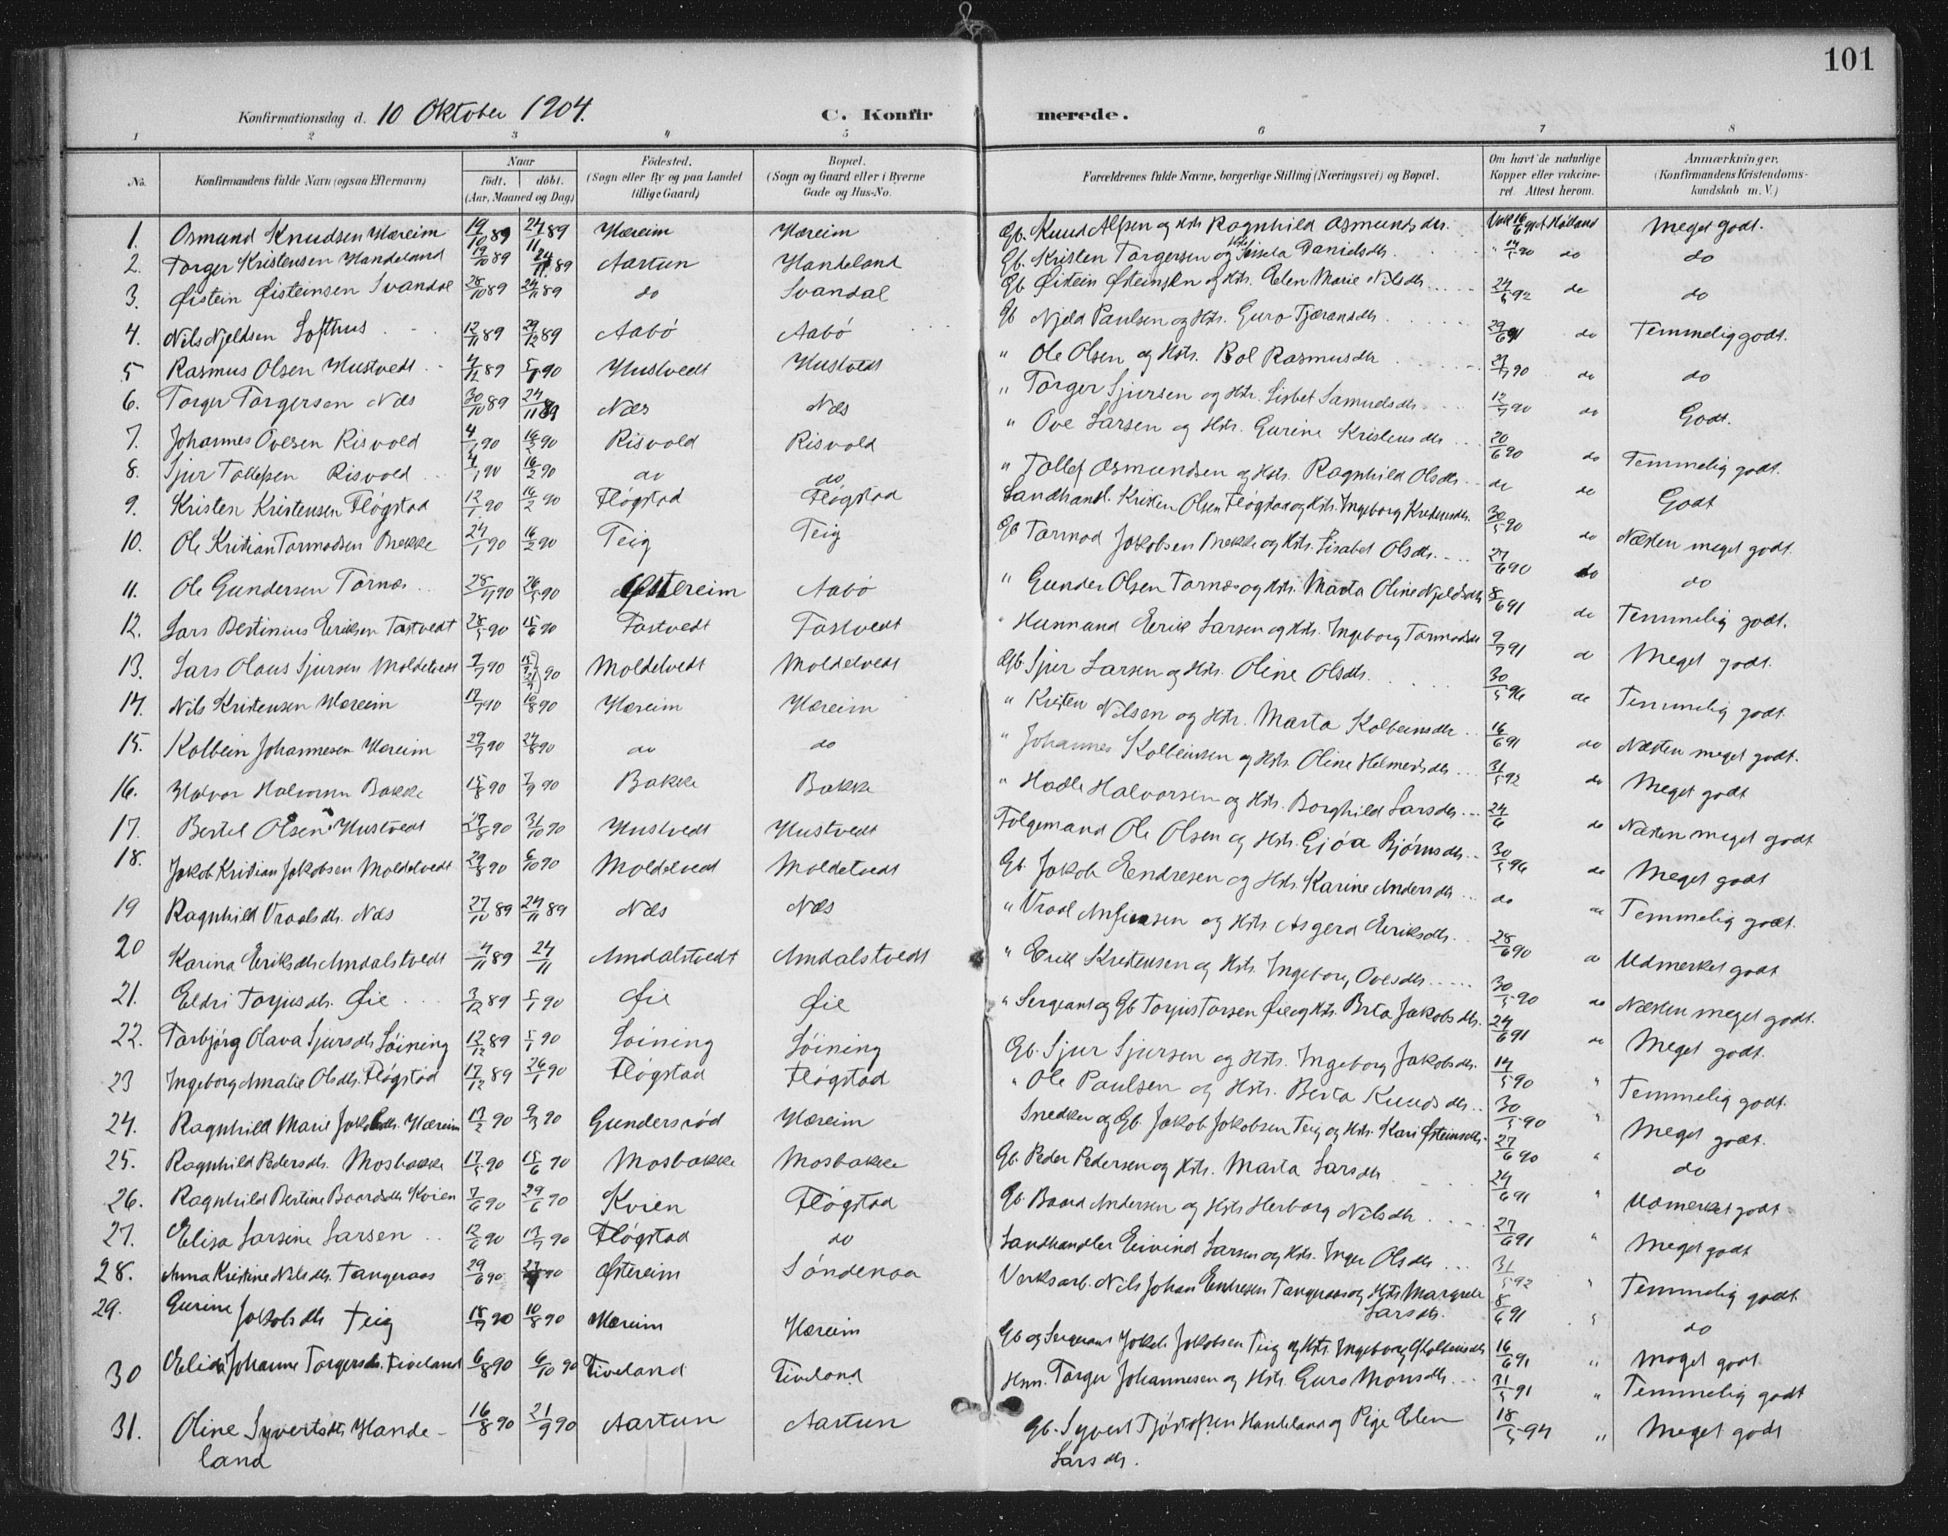 101
Konfirmationsdag d. 10 Oktober 1904. C. Konfirmerede.
1 2 3 4 5 6 7 8
No. Konfirmandens fulde Navn (ogsaa Efternavn) Naar født. døbt. (Aar, Maaned og Dag) Fødested. (Sogn eller By og paa Landet tillige Gaard) Bopæl. (Sogn og Gaard eller i Byerne Gade og Hus-No. Forældrenes fulde Navne, borgerlige Stilling (Næringsvei) og Bopæl. Om havt de naturlige Kopper eller vakcineret. Attest herom. Anmærkninger. (Konfirmandens Kristendomskundskab m. V.)
1. Osmund Knudsen Hæreim 19/10 89 24/11 89 Hæreim Hæreim Gb. Knud Alfsen og Hstr. Ragnhild Osmundsdtr. Meget godt.
2. Torger Kristensen Handeland 19/10 89 24/11 89 Aartun Handeland Gb. Kristen Torgersen og Hstr. Sissela Danielsdtr. 14/5 90 do do
3. Øistein Øisteinsen Svandal 28/10 89 24/11 89 do Svandal Gb Øistein Østeinsen og Hstr. Elen Marie Nilsdtr. 24/5 92 do do
4. Nils Njeldsen Lofthus 12/11 89 29/12 89 Aabø Aabø Gb Njeld Paulsen og Hstr. Guro Tjæransdtr. 29/6 91 do Temmelig godt.
5 Rasmus Olsen Hustvedt 4/12 89 5/1 90 Hustvedt Hustvedt " Ole Olsen og Hstr. Bol Rasmusdtr do do
6. Torger Torgersen Næs 30/10 89 24/11 89 Næs Næs " Torger Sjursen og Hstr. Lisbet Samuelsdtr. 12/7 90 do Godt.
7. Johannes Ovesen Risvold 90 16/2 90 Risvold Risvold " Ove Larsen og Hstr. Gurine Kristensdtr 20/6 90 do Temmelig godt.
8. Sjur Tollefsen Risvold 4/1 90 16/2 90 do do " Tollef Osmundsen og Hstr. Ragnhild Olsdtr. do do Godt
9. Kristen Kristensen Fløgstad 12/1 90 16/2 90 Fløgstad Fløgstad Landhandl. Kristen Olsen Fløgstad og Hstr. Ingeborg 30/5 90 do Næsten meget godt.
10. Ole Kristian Tormodsen Brekke 24/1 90 16/2 90 Teig Teig Gb Tormod Jakobsen Brekke og Hstr. Lisabet Olsdtr. 27/6 90 do do
11. Ole Gundersen Tornæs 90 26/5 90 Østereim Aabø " Gunder Olsen Tornæs og Hstr. Marta Oline Njeldsdtr 8/6 91 do Temmelig godt.
12. Lars Bertinius Eriksen Tostvedt 28/5 90 15/6 90 Tostvedt Tostvedt " Husmand Erik Larsen og Hstr. Ingeborg Tormodsdtr 9/7 91 do Meget godt.
13. Lars Olaus Sjursen Moldetvedt 9/7 90 90 Moldetvedt Moldetvedt Gb. Sjur Larsen og Hstr. Oline Olsdtr. 30/5 96 do Temmelig godt.
14. Nils Kristensen Hæreim 17/7 90 10/8 90 Hæreim Hæreim " Kristen Nilsen og Hstr. Marta Kolbeinsdtr 16/6 91 do Næsten meget godt.
15. Kolbein Johannesen Hæreim 29/7 90 24/8 90 do do " Johannes Kolbeinsen og Hstr. Oline Helmersdtr. 31/5 92 do Meget godt
16. Halvor Halvorsen Bakke 15/8 90 7/9 90 Bakke Bakke " Hadle Halvorsen og Hstr. Borghild Larsdtr. 24/6 do Næsten meget godt
17. Bertel Olsen Hustvedt 27/8 90 31/10 90 Hustvedt Hustvedt Følgemand Ole Olsen og Hstr. Gjøa Bjørnsdtr. 30/5 96 do Meget godt
18. Jakob Kristian Jakobsen Moldetvedt 29/8 90 6/10 90 Moldetvedt Moldetvedt Gb. Jakob Endresen og Hstr. Karine Andersdtr. do do Temmelig godt.
19 Ragnhild Vraalsdtr. Næs 27/10 89 24/11 89 Næs Næs " Vraal Anfinsen og Hstr. Asgerd Eriksdtr. 28/6 90 do Udmerket godt
20 Karina Eriksdtr. Amdalstvedt 4/11 89 24/11 Amdalstvedt Amdalstvedt " Erik Kristensen og Hstr. Ingeborg Ovesdtr. 30/5 90 do Næsten meget godt.
21. Eldri Torjusdtr. Øie 3/12 89 5/1 90 Øie Øie " Sergeant og Gb Torjus Torsen Øie og Hstr. Brta Jakobsdtr. 24/6 91 do Meget godt.
22. Torbjørg Olava Sjursdtr. Løining 12/12 89 5/1 90 Løining Løining Gb. Sjur Sjursen og Hstr. Ingeborg Jakobsdtr. 14/5 90 " Temmelig godt.
23 Ingeborg Amalie Olsdtr. Fløgstad 17/12 89 26/1 90 Fløgstad Fløgstad " Ole Paulsen og Hstr. Berta Knudsdtr. 30/5 90 " Meget godt.
24. Ragnhild Marie Jakobsdtr. Hæreim 17/2 90 9/3 90 Gundersrød Hæreim Snedker og Gb. Jakob Jakobsen Teig og Hstr. Kari Østeinsdtr. 27/6 90 " do
25. Ragnhild Pedersdtr. Mosbakke 17/5 90 15/6 90 Mosbakke Mosbakke Gb. Peder Pedersen og Hstr. Marta Larsdtr 24/6 91 " Udmerket godt.
26. Ragnhild Bertine Baardsdtr Kvien 7/6 90 29/6 90 Kvien Fløgstad Gb. Baard Andersen og Hstr Herborg Nilsdtr 27/6 91 " Meget godt
27. Elisa Larsine Larsen 12/6 90 13/7 90 Fløgstad do Landhandler Eivind Larsen og Hstr. Inger Olsdtr 31/5 92 " Temmelig godt.
28. Anna Kristine Nilsdtr. Tangeraas 29/6 90 90 Østereim Søndenaa Verksarb. Nils Johan Endresen Tangeraas og Hstr Margrete Larsdtr. 8/6 91 " do
29. Gurine Jakobsdtr Teig 18/7 90 10/8 90 Hæreim Hæreim Gb og Sergeant Jakob Jakobsen Teig og Hstr. Ingeborg Kolbeinsdtr 16/6 91 " Meget godt.
30 Elida Johanne Torgersdtr. Tiveland 6/8 90 6/10 90 Tiveland Tiveland Hmn. Torger Johannesen og Hstr. Guro Monsdtr. 31/5 91 " Temmelig godt
31. Oline Syvertsdtr Handeland 16/8 90 21/9 90 Aartun Aartun Gb. Syvert Handeland og Pige Elen Larsdtr. 18/5 94 " Meget godt